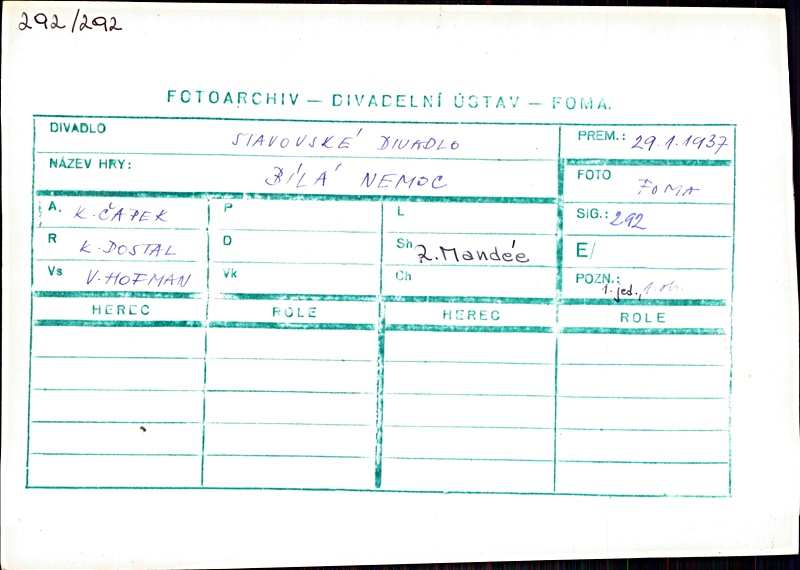 292/292
FOTOARCHIV — DIVADELNÍ ÚSTAV — FOMA.
DIVADLO STAVOVSKÉ DIVADLO PREM.: 29.1.1937
NÁZEV HRY: BÍLÁ NEMOC FOTO FOMA
A. K. ČAPEK P L SIG.: 292
R K. DOSTAL D Sh Z. Mandée E/
Vs V. HOFMAN Vk Ch POZN.: 1. jed.,
HEREC ROLE HEREC ROLE